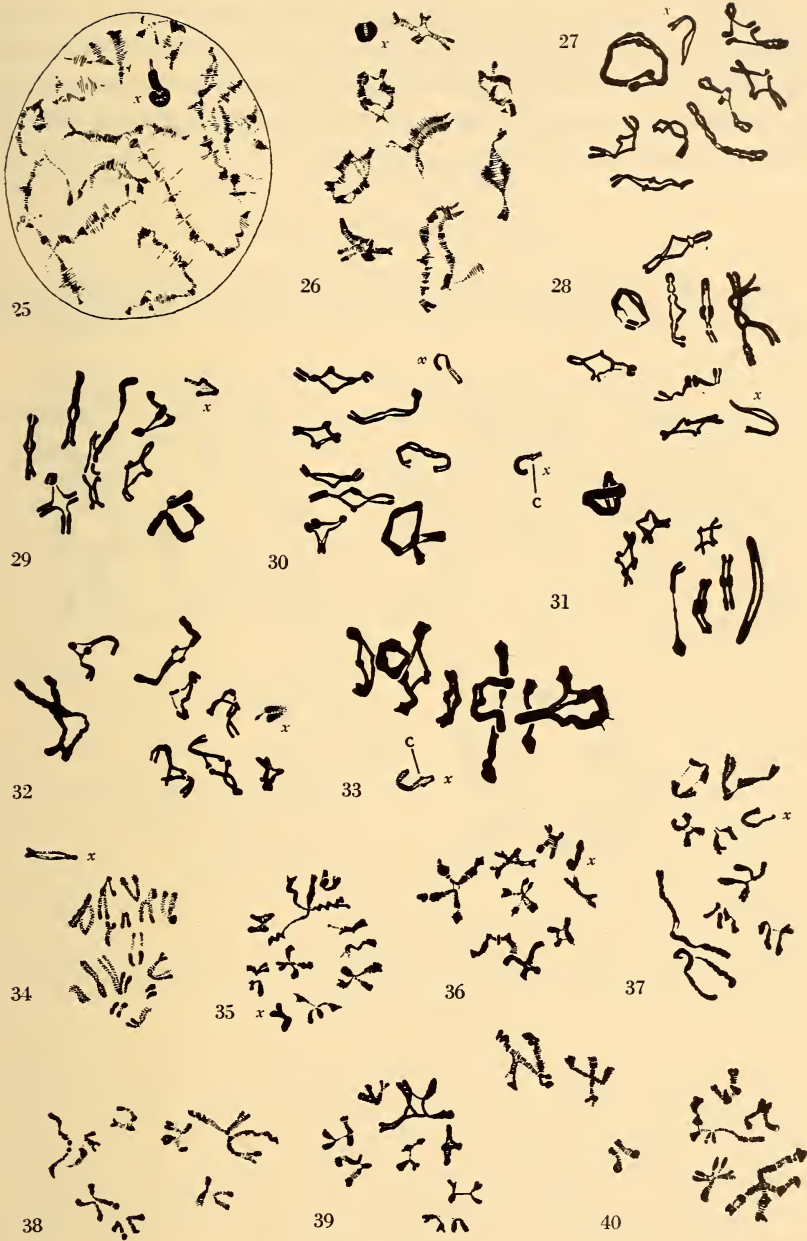 x
25
x
26
27
x
28
x
29
x
30
x
x
C
31
32
x
33
C
x
x
34
35
x
36
x
37
x
38
39
40